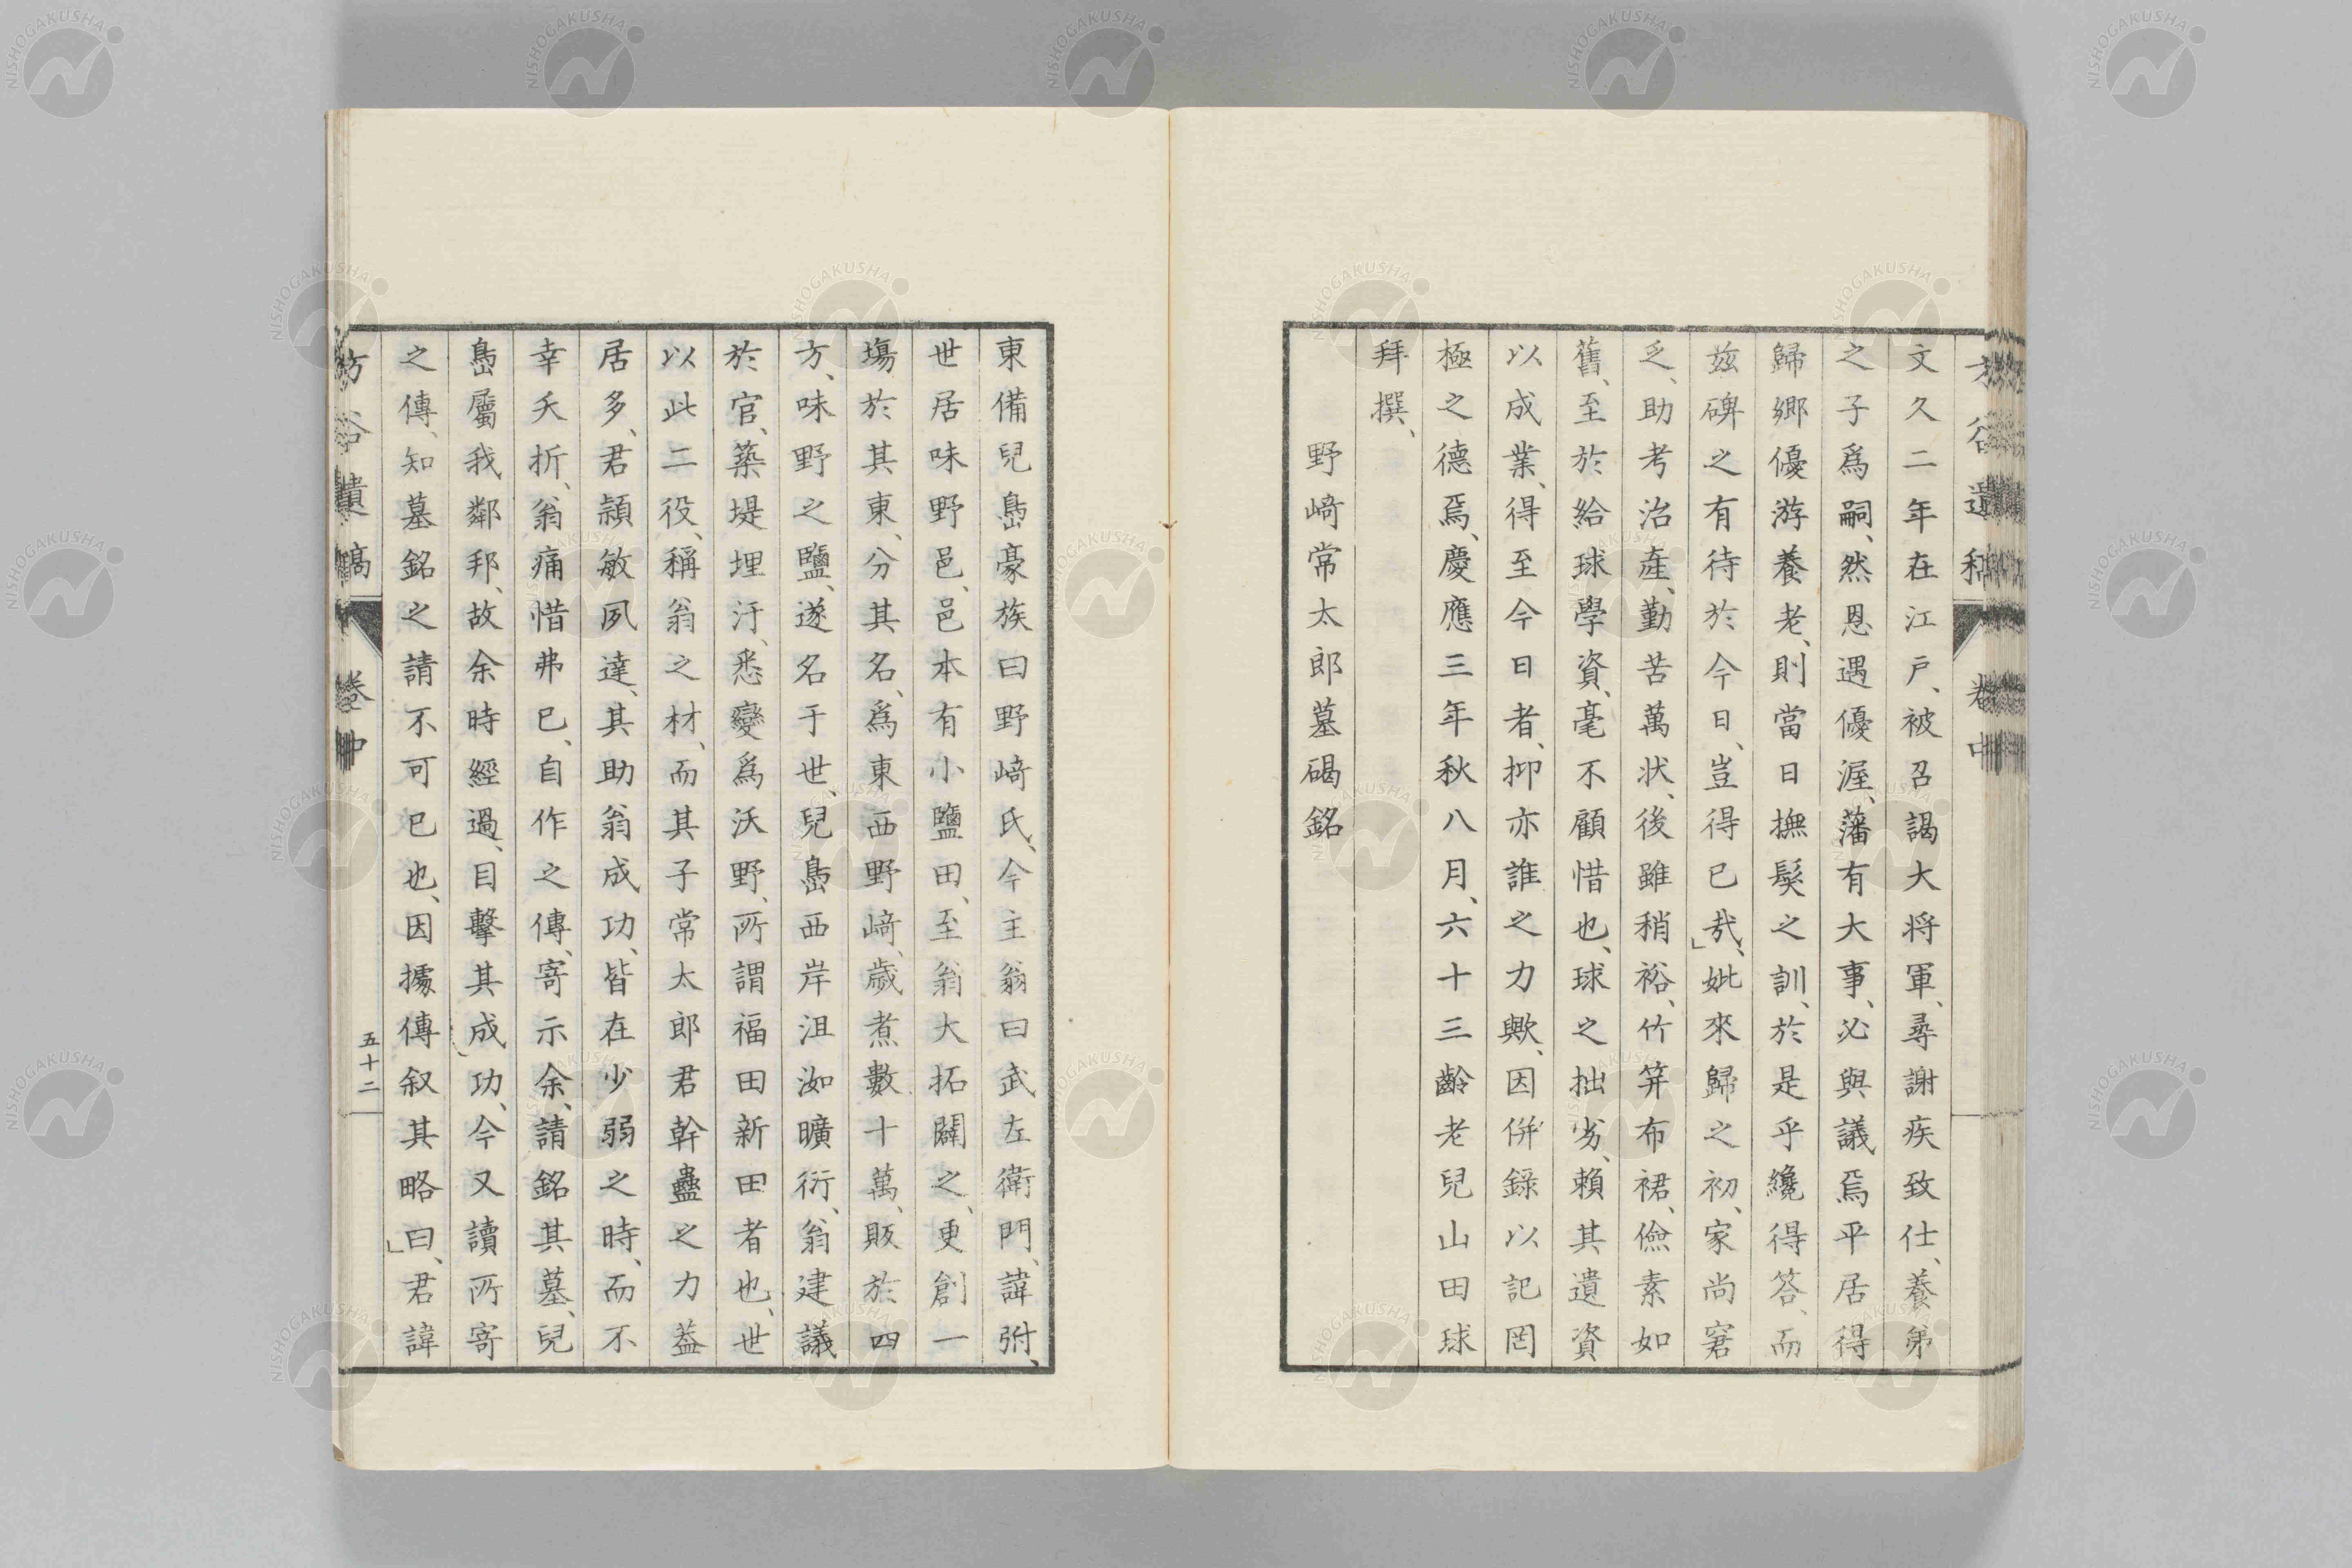 文久二年在江戸、被召謁大将軍、尋謝疾致仕、養弟
之子爲嗣、然恩遇優渥、藩有大事、必與議焉平居得
歸鄉優游養老、則當日撫髮之訓、於是乎纔得答、而
兹碑之有待於今日、豈得已哉、」妣來歸之初、家尚窘
乏、助考治產、勤苦萬状、後雖稍裕、竹笄布裙、儉素如
舊、至於給球學資、毫不顧惜也、球之拙劣、賴其遺資
以成業、得至今日者、抑亦誰之力歟、因併錄以記罔
極之德焉、慶應三年秋八月、六十三齡老兒山田球
拜撰、
野﨑常太郎墓碣銘
東備兒㠀豪族曰野﨑氏、今主翁曰武左衛門、諱弣、
世居味野邑、邑本有小鹽田、至翁大拓闢之、更創一
塲於其東、分其名、爲東西野﨑、歲煮數十萬、販於四
方、味野之鹽、遂名于世、兒㠀西岸沮洳曠衍、翁建議
於官、築堤埋汙、悉變爲沃野、所謂福田新田者也、世
以此二役、稱翁之材、而其子常太郎君幹蠱之力蓋
居多、君頴敏夙達、其助翁成功、皆在少弱之時、而不
幸夭折、翁痛惜弗已、自作之傳、寄示余、請銘其墓、兒
㠀屬我鄰邦、故余時經過、目擊其成功、今又讀所寄
之傳、知墓銘之請不可已也、因據傳叙其略曰、」君諱
方谷遺稿
卷中
五十二